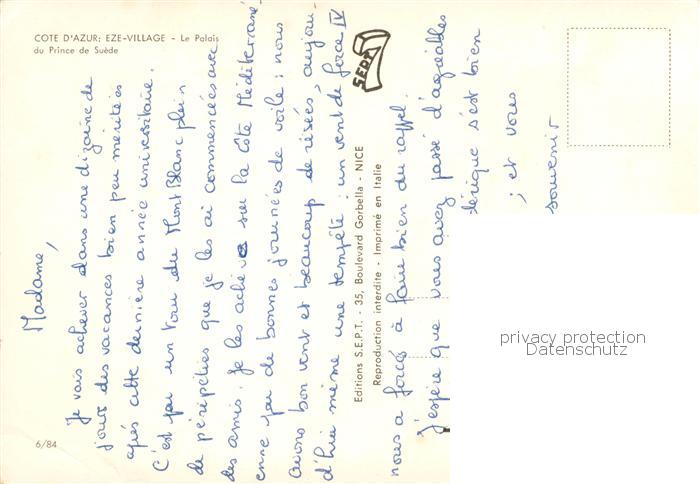 COTE D'AZUR; EZE-VILLAGE - Le Palais
du Prince de Suède
Madame,
Je vais achever dans une dizaine de
jours des vacances bien peu méritées
après cette dernière année universitaire.
C'est par un tour du Mont Blanc plein
de péripéties que je les ai commencées avec
des amis. Je les achève sur la côte Méditerrané-
enne par de bonnes journées de voile : nous
avons bon vent et beaucoup de risées, aujou-
d'hui même une tempête : un vent de force IV
nous a forcés à faire bien du rappel.
J'espère que vous avez passé d'agréables
térique s'est bien
; et vous
souvenir
SEPT
Editions S.E.P.T. - 35, Boulevard Gorbella - NICE
Reproduction interdite - Imprimé en Italie
6/84
privacy protection
Datenschutz